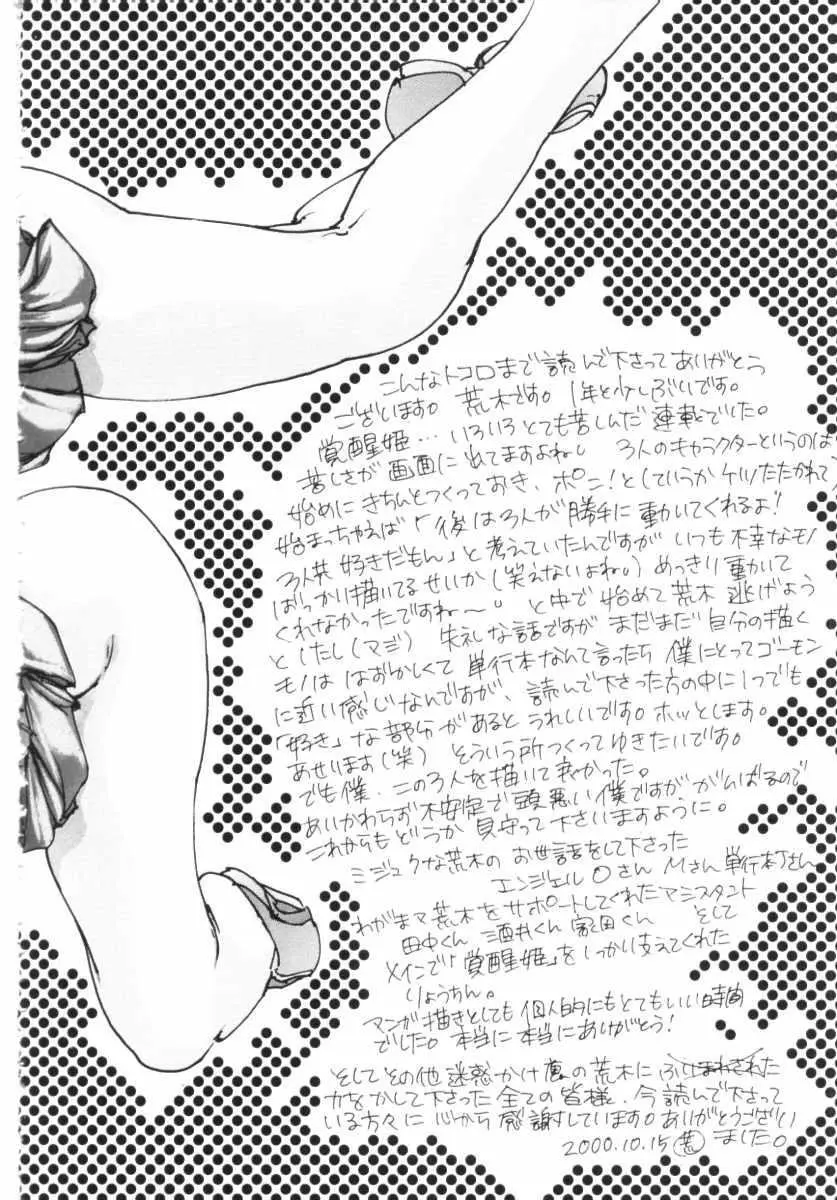 こんなトコロまで読んで下さってありがとう
ございます。荒木です。1年と少しぶりです。
覚醒姫…いろいろとても苦しんだ連載でした。
苦しさが画面に出てますよね。3人のキャラクターというのは
始めにきちんとつくっておき、ポン!としていうかケツたたかれて
始まっちゃえば「後は3人が勝手に動いてくれるよ!
3人共好きだもん」と考えていたんですがいつも不幸なモノ
ばっかり描いてるせいか(笑えないよね。)めっきり動いて
くれなかったですね〜。と中で始めて荒木逃げよう
としたし(マジ) 失礼な話ですがまだまだ自分の描く
モノははずかしくて単行本なんて言ったら僕にとってゴーモン
に近い感じなんですが、読んで下さった方の中に1つでも
「好き」な部分があるとうれしいです。ホッとします。
あせります(笑) そういう所つくってゆきたいです。
でも僕、この3人を描いて良かった。
あいかわらず不安定で頭悪い僕ですががんばるので
これからもどうか見守って下さいますように。
ミジュクな荒木のお世話をして下さった
エンジェルOさん Mさん 単行本Tさん
わがまマ荒木をサポートしてくれたアシスタント
田中くん 酒井くん くん そして
メインで「覚醒姫」をしっかり支えてくれた
りょうちん。
マンガ描きとしても個人的にもとてもいい時間
でした。本当に本当にありがとう!
そしてその他迷惑かけの荒木に
力をかして下さった全ての皆様、今読んで下さって
いる方々に心から感謝しています。ありがとうござい
2000.10.15 荒 ました。